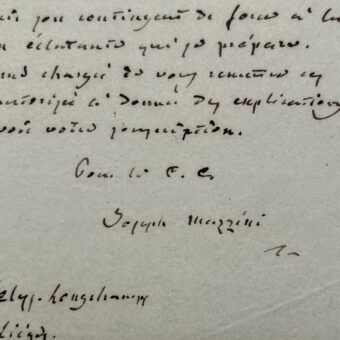 contingent de force à la
éclatante qui se prépare.
chargé de vous remettre ces
autorisé à donner des explications
votre souscription.
Pour le C. C.
Joseph Mazzini
Longchamps
Liège.